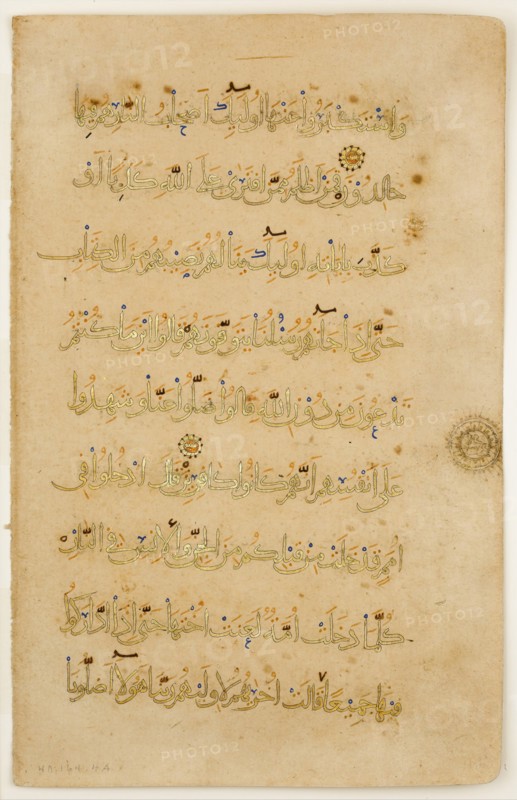 واستكبروا عنها أولئك أصحاب النار هم فيها
خالدون فمن أظلم ممن افترى على الله كذبا أو
كذب بآياته أولئك ينالهم نصيبهم من الكتاب
حتى إذا جاءتهم رسلنا يتوفونهم قالوا أين ما كنتم
تدعون من دون الله قالوا ضلوا عنا وشهدوا
على أنفسهم أنهم كانوا كافرين قال ادخلوا في
أمم قد خلت من قبلكم من الجن والإنس في النار
كلما دخلت أمة لعنت أختها حتى إذا اداركوا
فيها جميعا قالت أخراهم لأولاهم ربنا هؤلاء أضلونا
PHOTO12